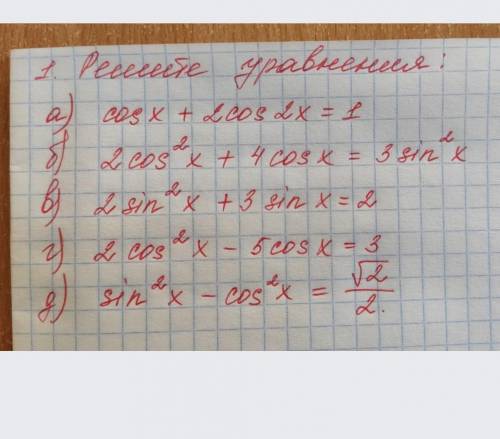 1. Решите уравнения:
а) cos x + 2cos 2x = 1
б) 2cos²x + 4cos x = 3sin²x
в) 2sin²x + 3sin x = 2
г) 2cos²x - 5cos x = 3
д) sin²x - cos²x = √2/2.